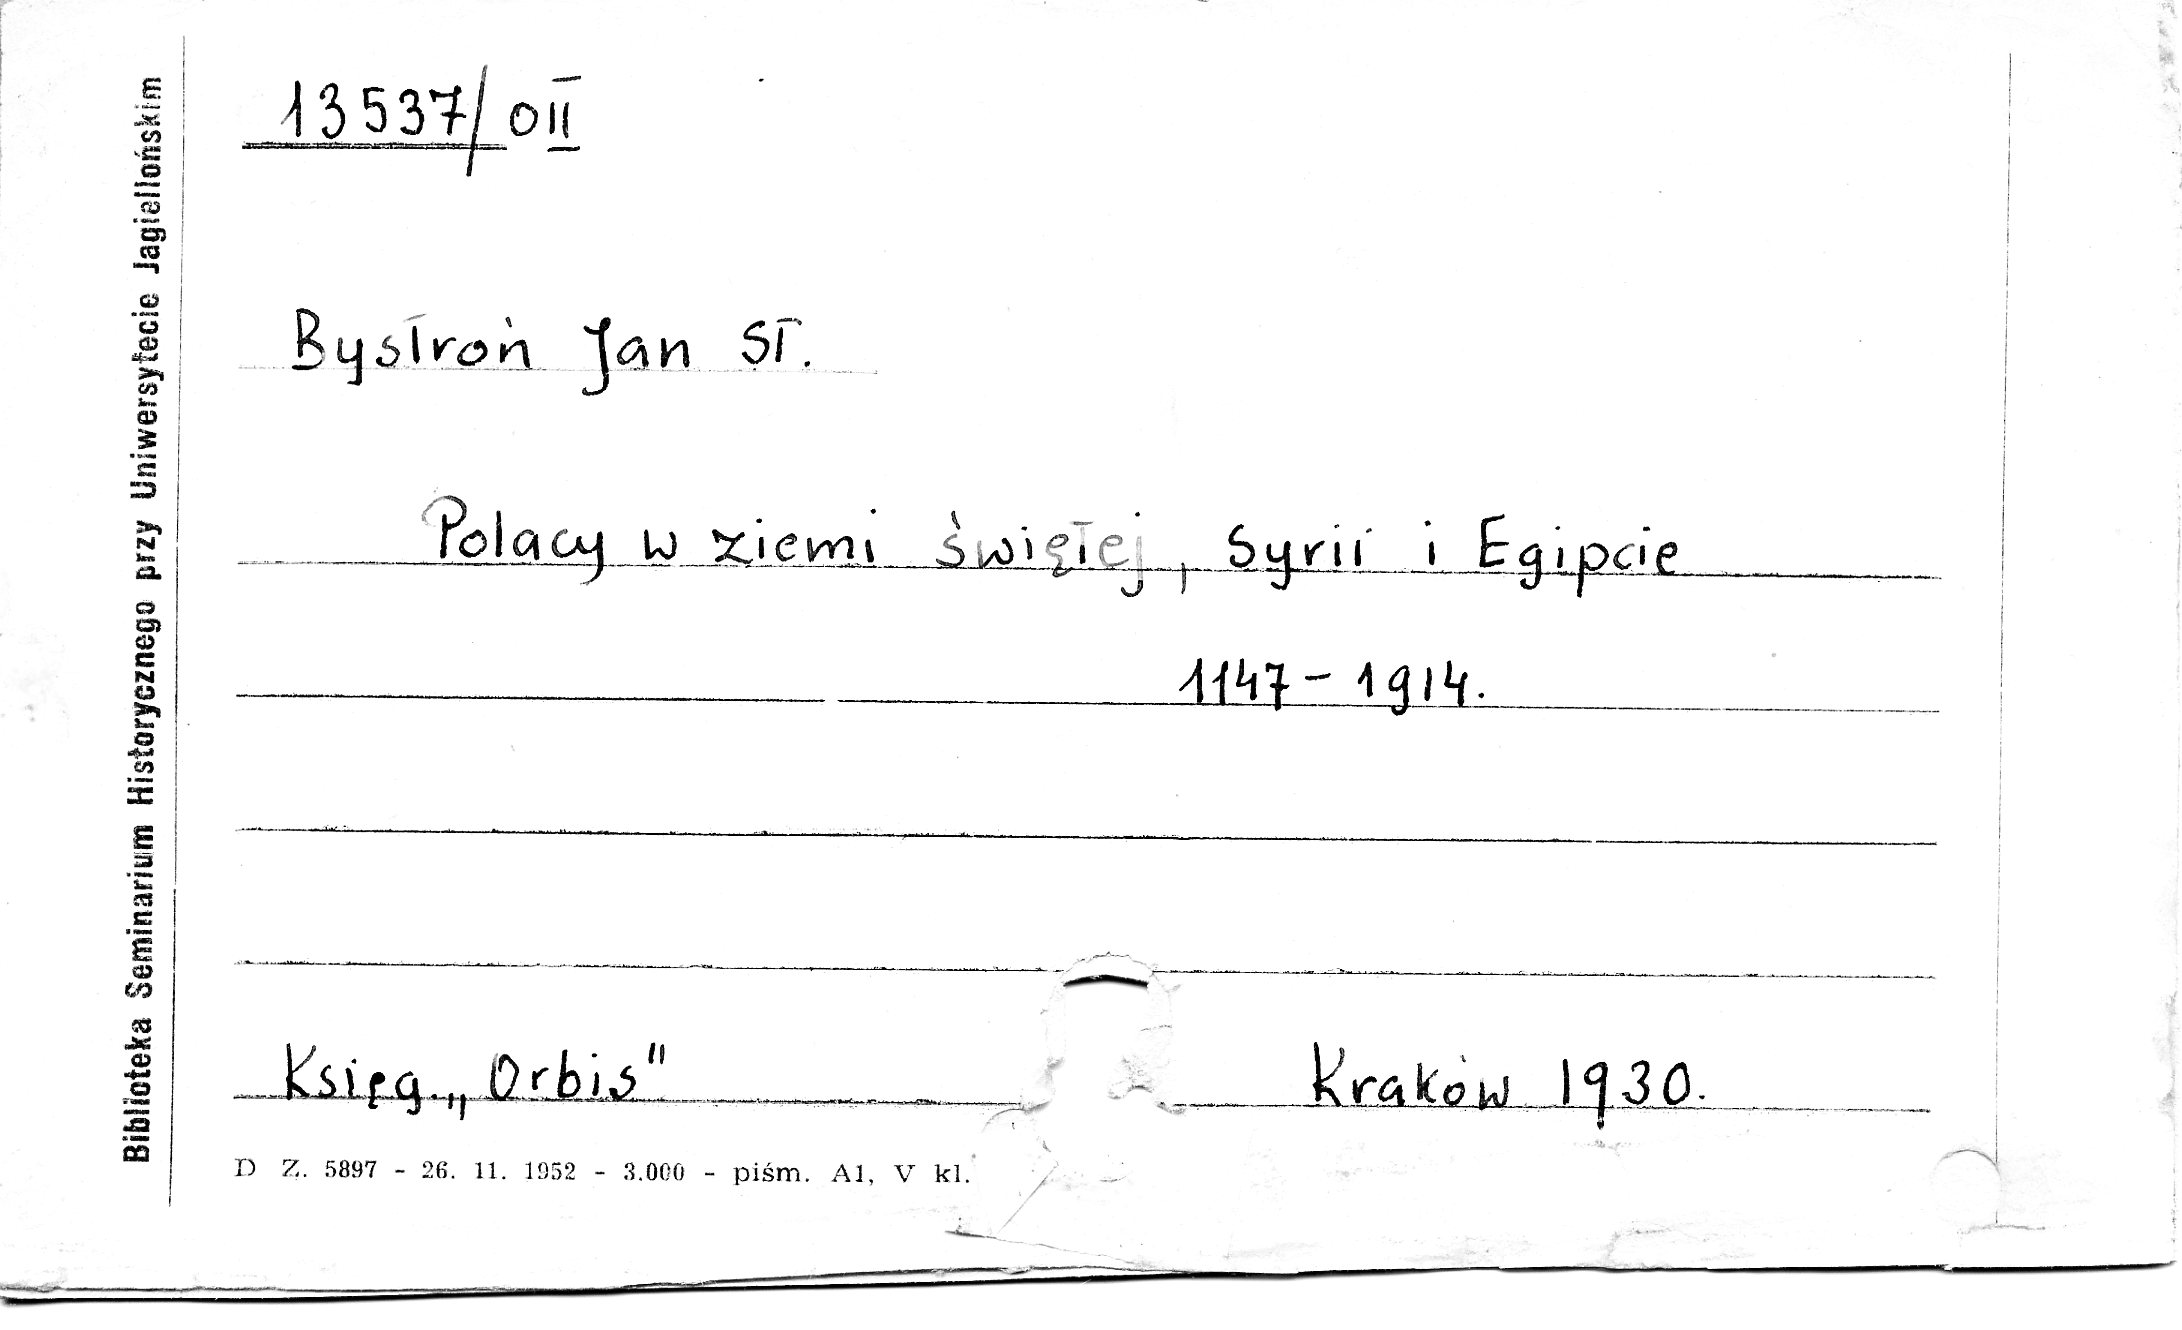 13537/OII
Bystroń Jan St.
Polacy w ziemi świętej, Syrii i Egipcie
1147 - 1914.
Księg. „Orbis"
Kraków 1930.
D Z. 5897 - 26. 11. 1952 - 3.000 - piśm. A1, V kl.
Biblioteka Seminarium Historycznego przy Uniwersytecie Jagiellońskim